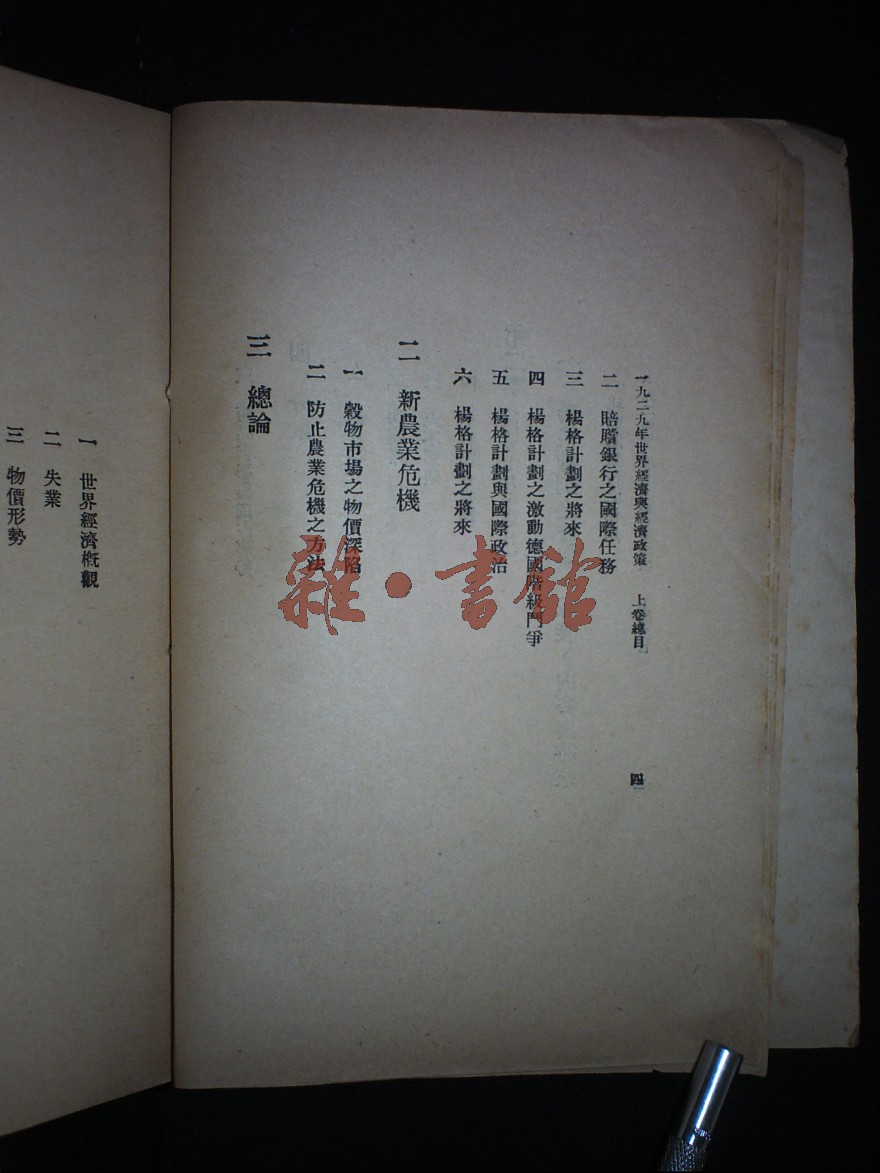 一九二九年世界經濟與經濟政策 上卷總目 四
二 賠償銀行之國際任務
三 楊格計劃之將來
四 楊格計劃之激動德國階級鬥爭
五 楊格計劃與國際政治
六 楊格計劃之將來
二 新農業危機
一 穀物市場之物價深陷
二 防止農業危機之方法
三 總論
一 世界經濟概觀
二 失業
三 物價形勢
雜·書館